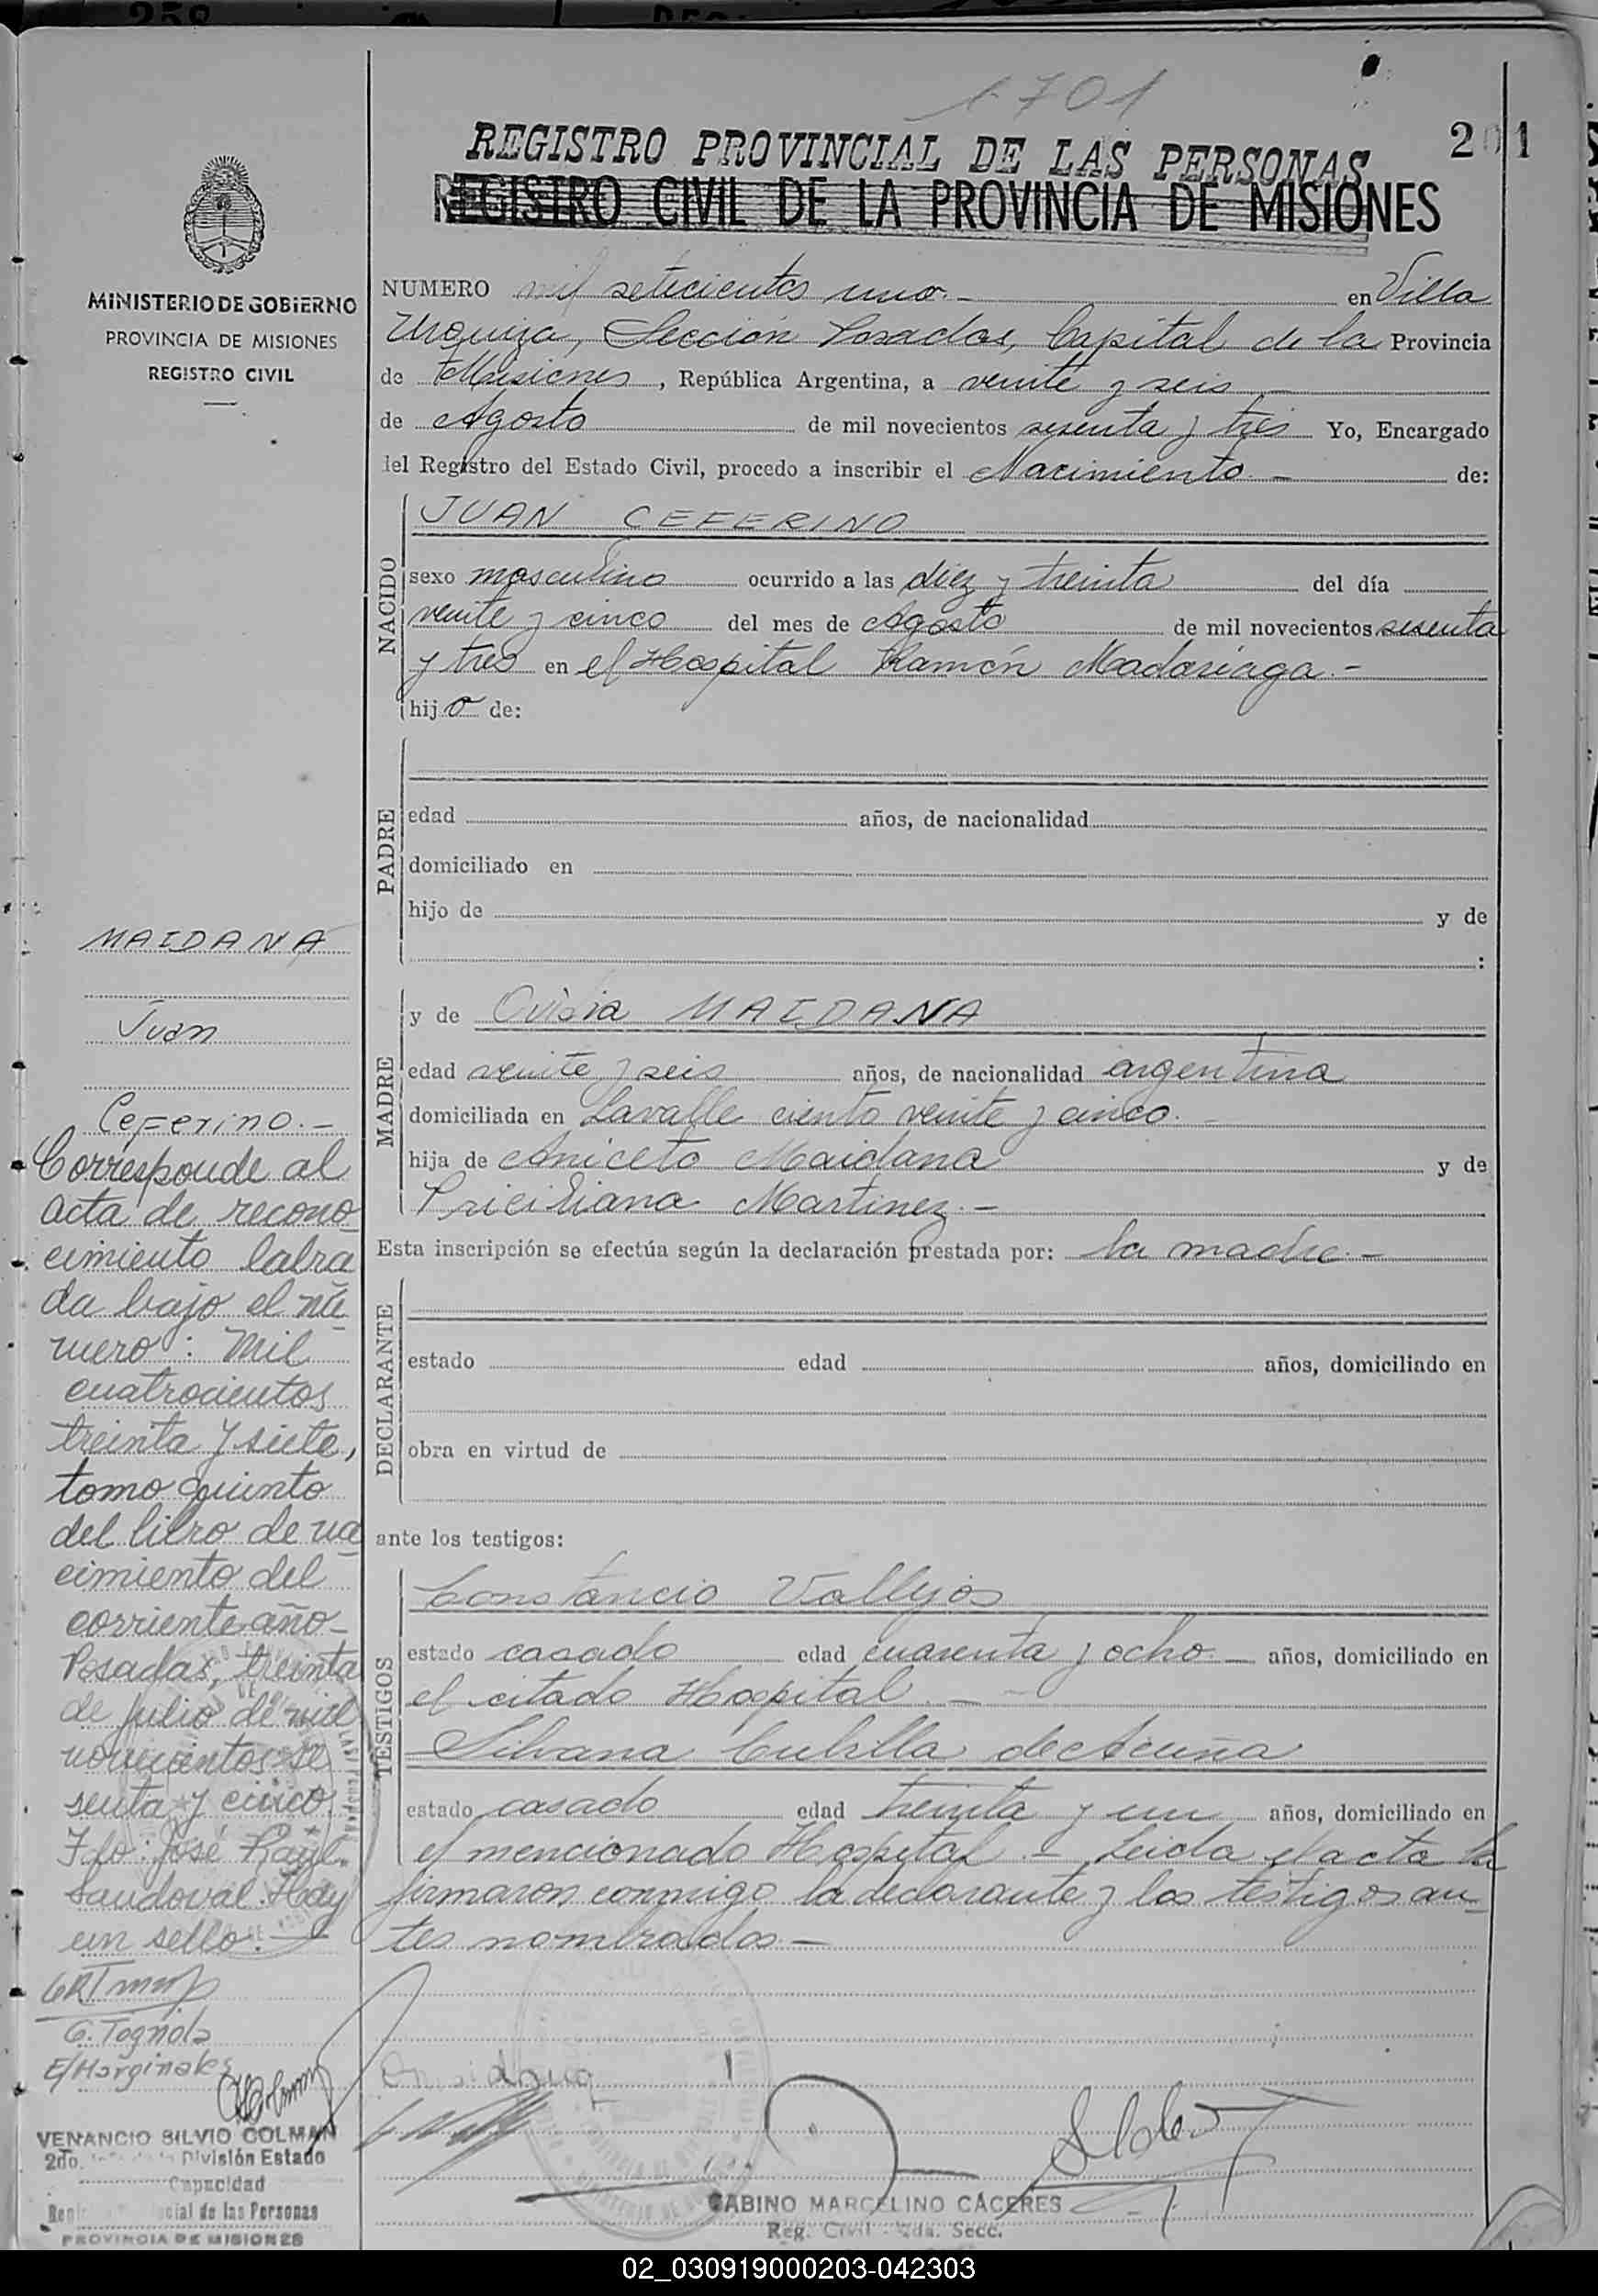 1701
201
REGISTRO PROVINCIAL DE LAS PERSONAS
REGISTRO CIVIL DE LA PROVINCIA DE MISIONES
MINISTERIO DE GOBIERNO
PROVINCIA DE MISIONES
REGISTRO CIVIL
NUMERO mil setecientos uno.- en Villa
Urquiza, Sección Posadas, Capital de la Provincia
de Misiones, República Argentina, a veinte y seis
de Agosto de mil novecientos sesenta y tres Yo, Encargado
del Registro del Estado Civil, procedo a inscribir el Nacimiento.- de:
NACIDO
JUAN CEFERINO
sexo masculino ocurrido a las diez y treinta del día
veinte y cinco del mes de Agosto de mil novecientos sesenta
y tres en el Hospital Ramón Madariaga.-
hijo de:
PADRE
edad años, de nacionalidad
domiciliado en
hijo de y de
:
MADRE
y de Ovidia MAIDANA
edad veinte y seis años, de nacionalidad argentina
domiciliada en Lavalle ciento veinte y cinco.-
hija de Aniceto Maidana y de
Priciliana Martinez.-
Esta inscripción se efectúa según la declaración prestada por: la madre.-
DECLARANTE
estado edad años, domiciliado en
obra en virtud de
ante los testigos:
TESTIGOS
Constancio Vallejos
estado casado edad cuarenta y ocho.- años, domiciliado en
el citado Hospital.-
Silvana Cubilla de Acuña
estado casado edad treinta y un años, domiciliado en
el mencionado Hospital.- Leida el acta la
firmaron conmigo la declarante y los testigos an-
tes nombrados.-
MAIDANA
Juan
Ceferino.-
Corresponde al
acta de recono-
cimiento labra
da bajo el nú-
mero: Mil
cuatrocientos
treinta y siete,
tomo quinto
del libro de na-
cimiento del
corriente año-
Posadas, treinta
de julio de mil
novecientos se
senta y cinco.
Fdo: José Raúl
Sandoval. Hay
un sello.-
G. Tognola
E/Marginales
VENANCIO SILVIO COLMAN
2do. División Estado
Capacidad
Provincial de las Personas
PROVINCIA DE MISIONES
GABINO MARCELINO CÁCERES
Reg. Civil - 2da. Secc.
02_030919000203-042303